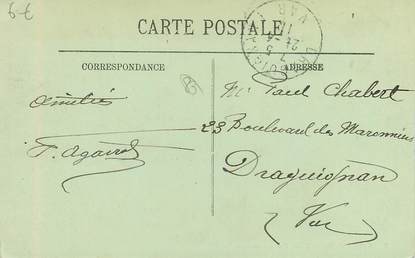 5-€
CARTE POSTALE
CORRESPONDANCE
ADRESSE
Mr Paul Chabert
Amitiés
23 Boulevard des Marronniers
Draguignan
Var